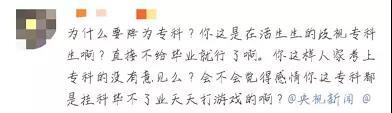 为什么要降为专科？你这是在活生生的歧视专科
生啊？直接不给毕业就行了啊。你这样人家考上
专科的没有意见么？会不会觉得感情你这专科都
是挂科毕不了业天天打游戏的啊？@央视新闻 @